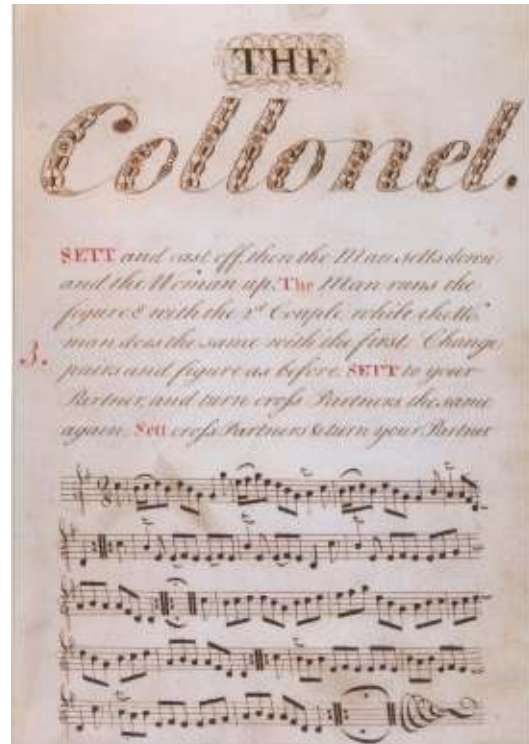 THE
Collonel.
SETT and cast off, then the Man setts down
and the Woman up. The Man runs the
figure 8 with the 2d Couple, while the Wo
man does the same with the first. Change
3. pairs and figure as before. SETT to your
Partner, and turn cross Partners, the same
again. Sett cross Partners & turn your Partner